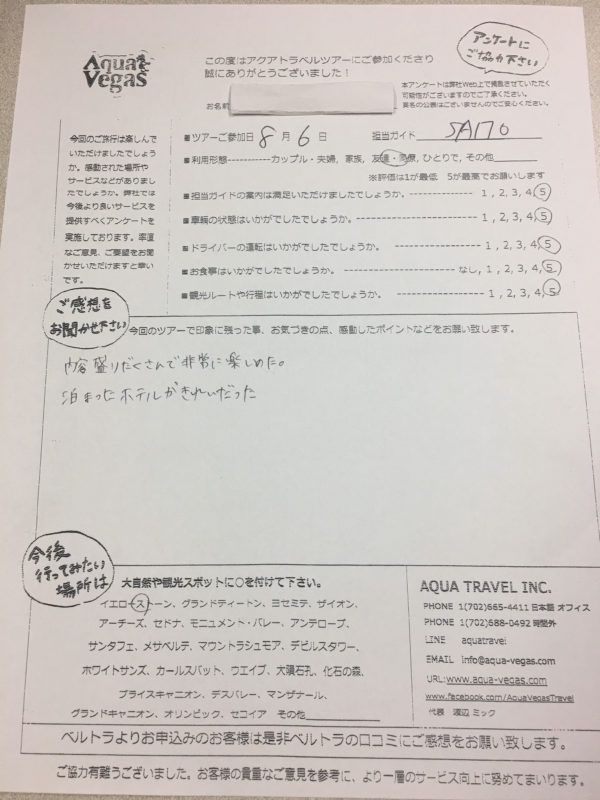 Aqua
Vegas
この度はアクアトラベルツアーにご参加くださり
誠にありがとうございました!
アンケートに
ご協力下さい
本アンケートは弊社Web上で掲載させていただく
可能性がございますのでご了承ください。
実名の公表はございませんのでご安心ください。
お名前
今回のご旅行は楽しんで
いただけましたでしょう
か。感動された場所や
サービスなどがありまし
たでしょうか。弊社では
今後より良いサービスを
提供すべくアンケートを
実施しております。率直
なご意見、ご要望をお聞
かせいただけますと幸い
です。
■ツアーご参加日 8 月 6 日 担当ガイド SAITO
■利用形態-----------カップル・夫婦, 家族, 友達・同僚, ひとりで, その他
※評価は1が最低 5が最高でお願いします
■担当ガイドの案内は満足いただけましたでしょうか。---------------- 1, 2, 3, 4, 5
■車輌の状態はいかがでしたでしょうか。------------------------- 1, 2, 3, 4, 5
■ドライバーの運転はいかがでしたでしょうか。------------------- 1, 2, 3, 4, 5
■お食事はいかがでしたでしょうか。---------------------- なし, 1, 2, 3, 4, 5
■観光ルートや行程はいかがでしたでしょうか。------------------- 1, 2, 3, 4, 5
ご感想を
お聞かせ下さい
今回のツアーで印象に残った事、お気づきの点、感動したポイントなどをお願い致します。
内容盛りだくさんで非常に楽しめた。
泊まったホテルがきれいだった
今後
行ってみたい
場所は
大自然や観光スポットに○を付けて下さい。
イエローストーン、グランドティートン、ヨセミテ、ザイオン、
アーチーズ、セドナ、モニュメント・バレー、アンテロープ、
サンタフェ、メサベルテ、マウントラシュモア、デビルスタワー、
ホワイトサンズ、カールスバット、ウエイブ、大隕石孔、化石の森、
ブライスキャニオン、デスバレー、マンザナール、
グランドキャニオン、オリンピック、セコイア その他
AQUA TRAVEL INC.
PHONE 1(702)665-4411 日本語 オフィス
PHONE 1(702)688-0492 時間外
LINE aquatravel
EMAIL info@aqua-vegas.com
URL:www.aqua-vegas.com
www.facebook.com/AquaVegasTravel
代表 渡辺 ミック
ベルトラよりお申込みのお客様は是非ベルトラの口コミにご感想をお願い致します。
ご協力有難うございました。お客様の貴重なご意見を参考に、より一層のサービス向上に努めてまいります。